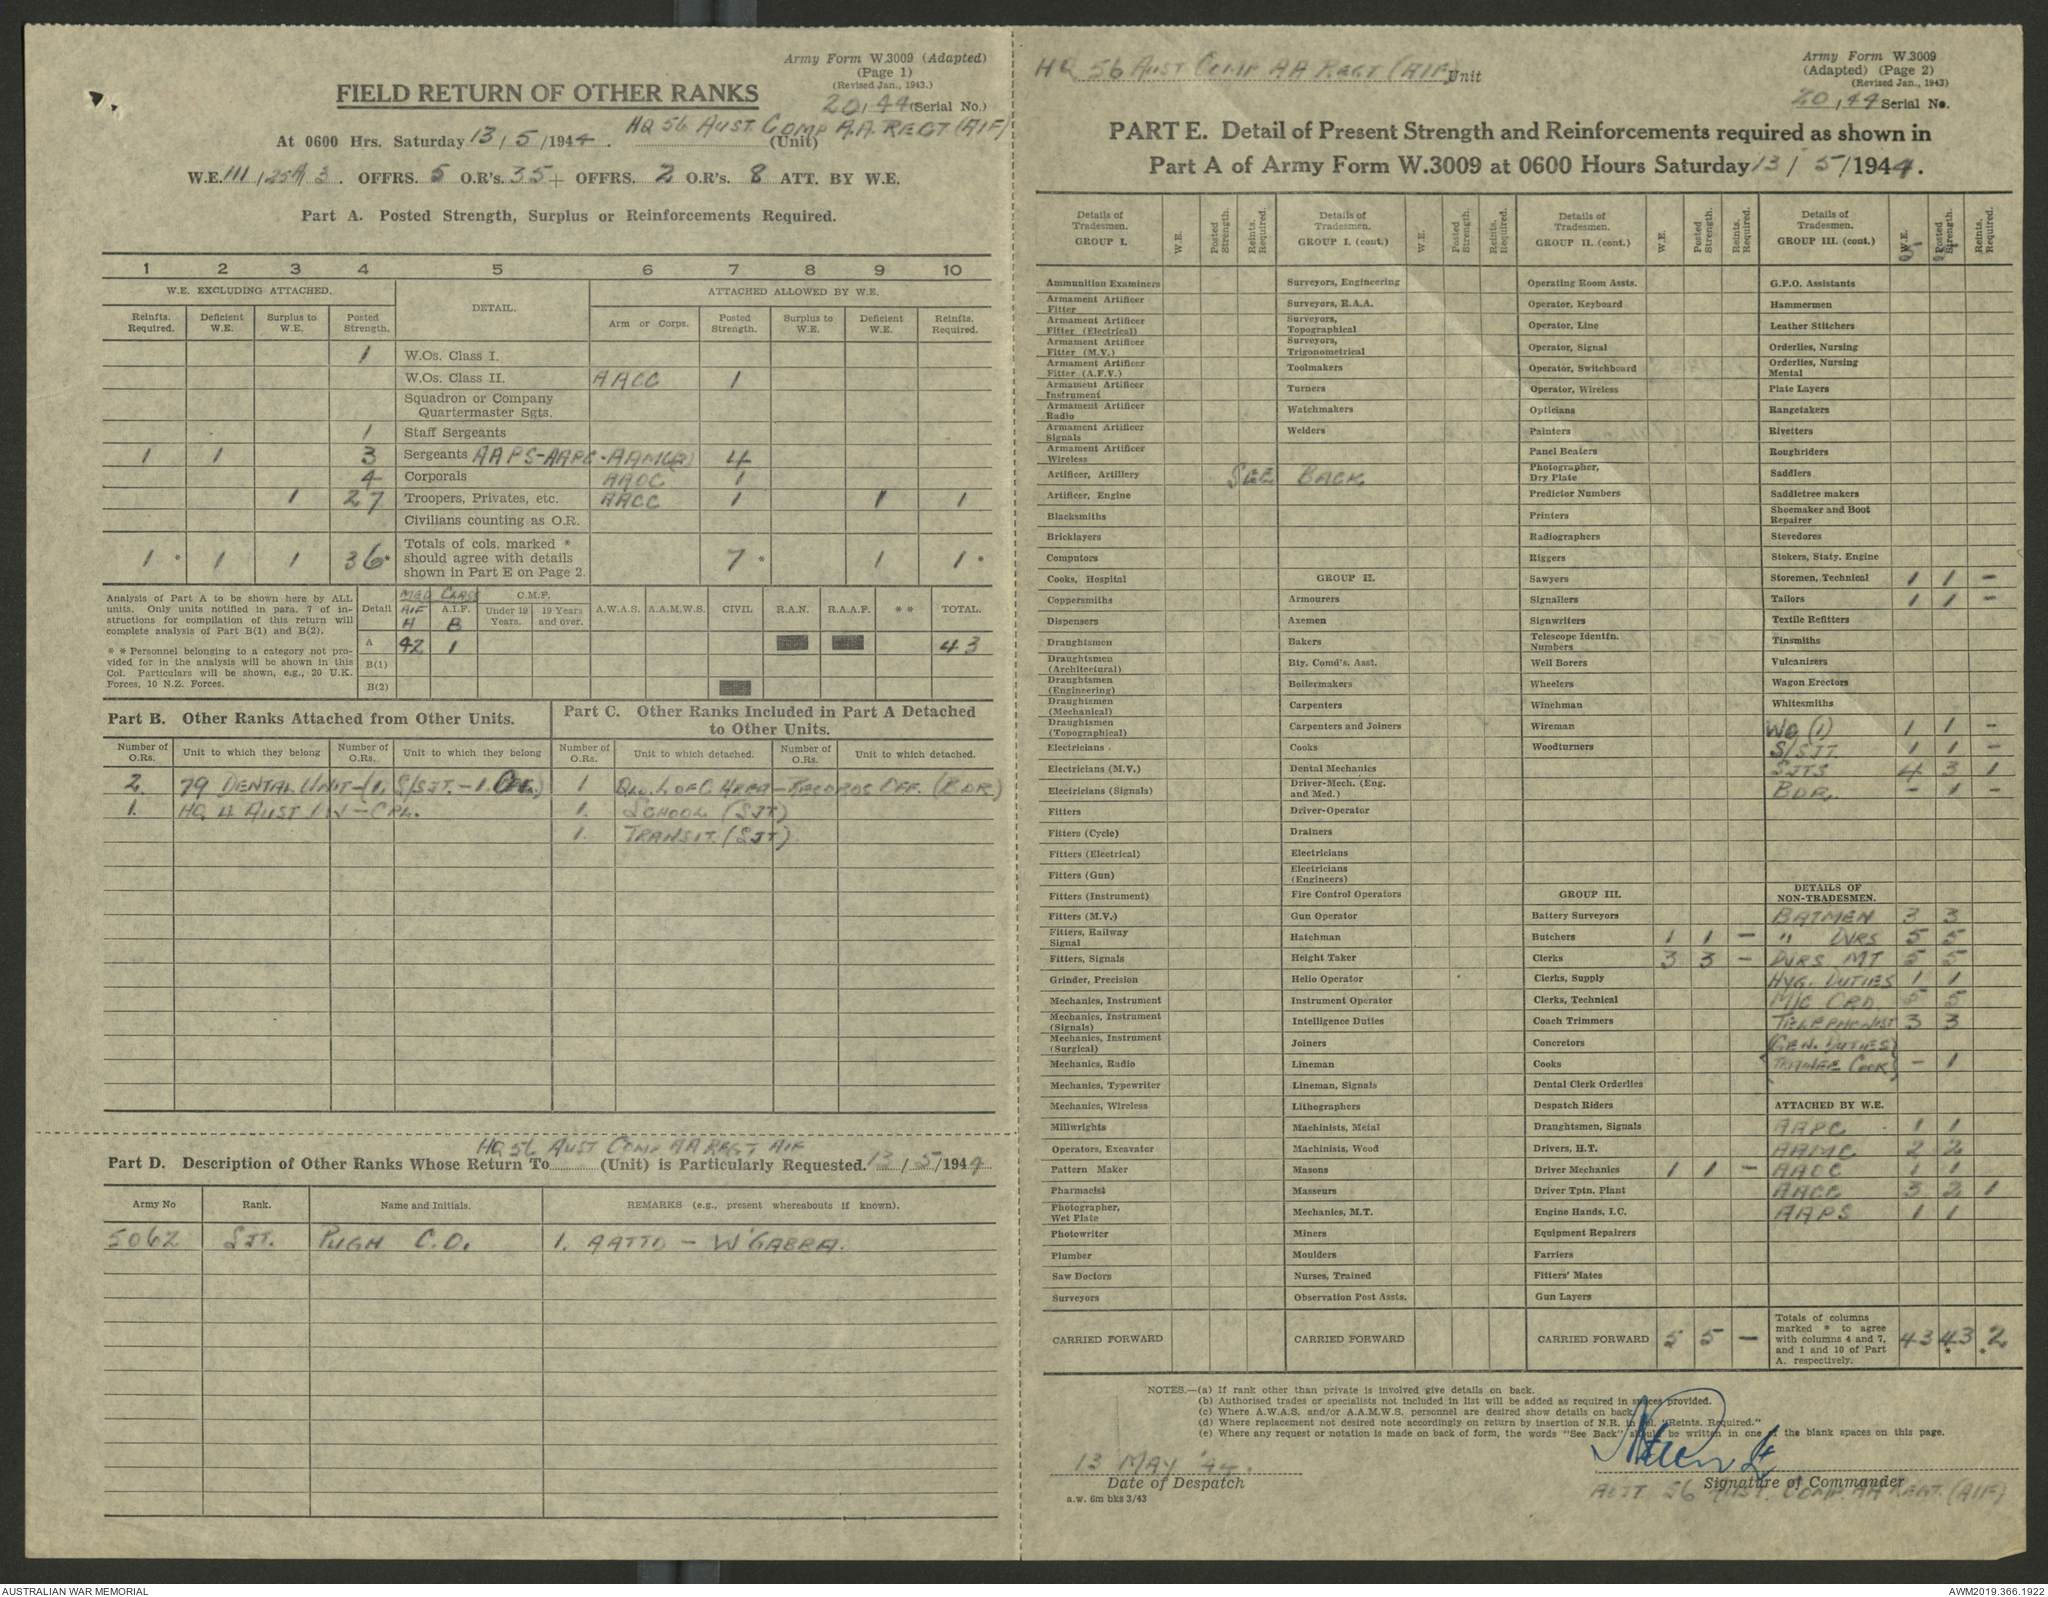 Army Form W.3009 (Adapted)
(Page 1)
(Revised Jan., 1943.)
FIELD RETURN OF OTHER RANKS
20/44 (Serial No.)
HQ 56 AUST COMP A.A. REGT (AIF)
At 0600 Hrs. Saturday 13/5/1944. (Unit)
W.E. III/254/3. OFFRS. 5 O.R's. 35 + OFFRS. 2 O.R's. 8 ATT. BY W.E.
Part A. Posted Strength, Surplus or Reinforcements Required.
1 2 3 4 5 6 7 8 9 10
W.E. EXCLUDING ATTACHED. DETAIL. ATTACHED ALLOWED BY W.E.
Reinfts. Required. Deficient W.E. Surplus to W.E. Posted Strength. Arm or Corps. Posted Strength. Surplus to W.E. Deficient W.E. Reinfts. Required.
1 W.Os. Class I.
W.Os. Class II. AACC 1
Squadron or Company Quartermaster Sgts.
1 Staff Sergeants
1 1 3 Sergeants AAPS-AAPC-AAMC(2) 4
4 Corporals AAOC 1
1 27 Troopers, Privates, etc. AACC 1 1 1
Civilians counting as O.R.
1* 1 1 36* Totals of cols. marked * should agree with details shown in Part E on Page 2. 7* 1 1*
Analysis of Part A to be shown here by ALL units. Only units notified in para. 7 of instructions for compilation of this return will complete analysis of Part B(1) and B(2).
* * Personnel belonging to a category not provided for in the analysis will be shown in this Col. Particulars will be shown, e.g., 20 U.K. Forces, 10 N.Z. Forces.
MED CLASS C.M.F.
Detail AIF A A.I.F. B Under 19 Years. 19 Years and over. A.W.A.S. A.A.M.W.S. CIVIL R.A.N. R.A.A.F. * * TOTAL.
A 42 1 43
B(1)
B(2)
Part B. Other Ranks Attached from Other Units.
Number of O.Rs. Unit to which they belong Number of O.Rs. Unit to which they belong
2. 79 DENTAL UNIT-(1. S/SJT.-1. CPL.)
1. HQ 4 AUST DIV-CPL.
Part C. Other Ranks Included in Part A Detached to Other Units.
Number of O.Rs. Unit to which detached. Number of O.Rs. Unit to which detached.
1 QLD. L OF C AREA-RECORDS OFF. (BDR)
1. SCHOOL (SJT)
1. TRANSIT. (SJT)
HQ 56 AUST COMP AA REGT AIF
Part D. Description of Other Ranks Whose Return To (Unit) is Particularly Requested. 13/5/1944
Army No Rank. Name and Initials. REMARKS (e.g., present whereabouts if known).
5062 SJT. PUGH C.D. 1. AATTD - W'GABBA.
HQ 56 AUST COMP AA REGT (AIF) Unit
Army Form W.3009
(Adapted) (Page 2)
(Revised Jan., 1943)
20/44 Serial No.
PART E. Detail of Present Strength and Reinforcements required as shown in
Part A of Army Form W.3009 at 0600 Hours Saturday 13/5/1944.
Details of Tradesmen. GROUP I. W.E. Posted Strength. Reints. Required.
Ammunition Examiners
Armament Artificer Fitter
Armament Artificer Fitter (Electrical)
Armament Artificer Fitter (M.V.)
Armament Artificer Fitter (A.F.V.)
Armament Artificer Instrument
Armament Artificer Radio
Armament Artificer Signals
Armament Artificer Wireless
Artificer, Artillery
Artificer, Engine
Blacksmiths
Bricklayers
Computors
Cooks, Hospital
Coppersmiths
Dispensers
Draughtsmen
Draughtsmen (Architectural)
Draughtsmen (Engineering)
Draughtsmen (Mechanical)
Draughtsmen (Topographical)
Electricians
Electricians (M.V.)
Electricians (Signals)
Fitters
Fitters (Cycle)
Fitters (Electrical)
Fitters (Gun)
Fitters (Instrument)
Fitters (M.V.)
Fitters, Railway Signal
Fitters, Signals
Grinder, Precision
Mechanics, Instrument
Mechanics, Instrument (Signals)
Mechanics, Instrument (Surgical)
Mechanics, Radio
Mechanics, Typewriter
Mechanics, Wireless
Millwrights
Operators, Excavator
Pattern Maker
Pharmacist
Photographer, Wet Plate
Photowriter
Plumber
Saw Doctors
Surveyors
CARRIED FORWARD
Details of Tradesmen. GROUP I. (cont.) W.E. Posted Strength. Reints. Required.
Surveyors, Engineering
Surveyors, R.A.A.
Surveyors, Topographical
Surveyors, Trigonometrical
Toolmakers
Turners
Watchmakers
Welders
SEE BACK
GROUP II.
Armourers
Axemen
Bakers
Bty. Comd's. Asst.
Boilermakers
Carpenters
Carpenters and Joiners
Cooks
Dental Mechanics
Driver-Mech. (Eng. and Med.)
Driver-Operator
Drainers
Electricians
Electricians (Engineers)
Fire Control Operators
Gun Operator
Hatchman
Height Taker
Helio Operator
Instrument Operator
Intelligence Duties
Joiners
Lineman
Lineman, Signals
Lithographers
Machinists, Metal
Machinists, Wood
Masons
Masseurs
Mechanics, M.T.
Miners
Moulders
Nurses, Trained
Observation Post Assts.
CARRIED FORWARD
Details of Tradesmen. GROUP II. (cont.) W.E. Posted Strength. Reints. Required.
Operating Room Assts.
Operator, Keyboard
Operator, Line
Operator, Signal
Operator, Switchboard
Operator, Wireless
Opticians
Painters
Panel Beaters
Photographer, Dry Plate
Predictor Numbers
Printers
Radiographers
Riggers
Sawyers
Signallers
Signwriters
Telescope Identfn. Numbers
Well Borers
Wheelers
Winchman
Wireman
Woodturners
GROUP III.
Battery Surveyors
Butchers 1 1 -
Clerks 3 3 -
Clerks, Supply
Clerks, Technical
Coach Trimmers
Concretors
Cooks
Dental Clerk Orderlies
Despatch Riders
Draughtsmen, Signals
Drivers, H.T.
Driver Mechanics 1 1 -
Driver Tptn. Plant
Engine Hands, I.C.
Equipment Repairers
Farriers
Fitters' Mates
Gun Layers
CARRIED FORWARD 5 5 -
Details of Tradesmen. GROUP III. (cont.) W.E. Posted Strength. Reints. Required.
G.P.O. Assistants
Hammermen
Leather Stitchers
Orderlies, Nursing
Orderlies, Nursing Mental
Plate Layers
Rangetakers
Rivetters
Roughriders
Saddlers
Saddletree makers
Shoemaker and Boot Repairer
Stevedores
Stokers, Staty. Engine
Storemen, Technical 1 1 -
Tailors 1 1 -
Textile Refitters
Tinsmiths
Vulcanizers
Wagon Erectors
Whitesmiths
WO (1) 1 1 -
S/SJT. 1 1 -
SJTS 4 3 1
BDR. - 1 -
DETAILS OF NON-TRADESMEN.
BATMEN 3 3
" DVRS 5 5
DVRS MT 5 5
HYG. DUTIES 1 1
M/C ORD. 5 5
TELEPHONIST 3 3
(GEN. DUTIES)
(TRAINEE COOK) - 1
ATTACHED BY W.E.
AAPC 1 1
AAMC 2 2
AAOC 1 1
AACC 3 2 1
AAPS 1 1
Totals of columns marked * to agree with columns 4 and 7, and 1 and 10 of Part A. respectively. 43 43* *2
NOTES.—(a) If rank other than private is involved give details on back.
(b) Authorised trades or specialists not included in list will be added as required in spaces provided.
(c) Where A.W.A.S. and/or A.A.M.W.S. personnel are desired show details on back.
(d) Where replacement not desired note accordingly on return by insertion of N.R. in col. "Reints. Required."
(e) Where any request or notation is made on back of form, the words "See Back" should be written in one of the blank spaces on this page.
13 MAY '44.
Date of Despatch
a.w. 6m bks 3/43
Signature of Commander
ADJT 56 AUST. COMP. AA REGT. (AIF)
AUSTRALIAN WAR MEMORIAL
AWM2019.366.1922